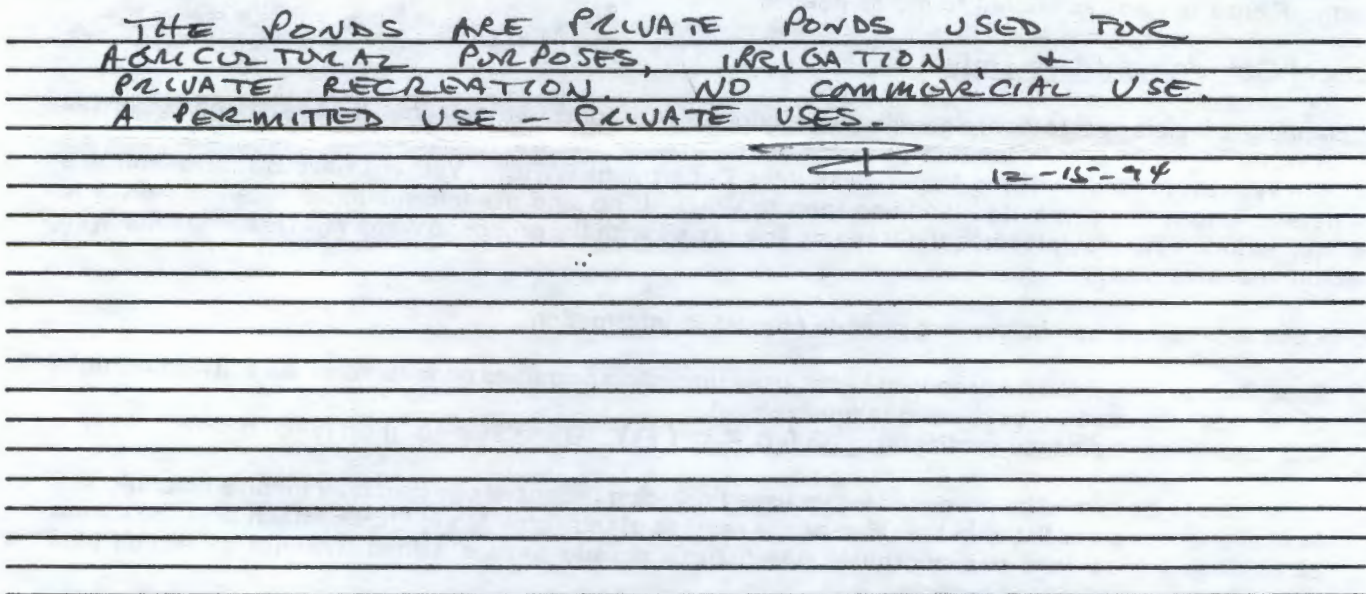 THE PONDS ARE PRIVATE PONDS USED FOR
AGRICULTURAL PURPOSES, IRRIGATION, +
PRIVATE RECREATION. NO COMMERCIAL USE.
A PERMITTED USE - PRIVATE USES.
12-15-94